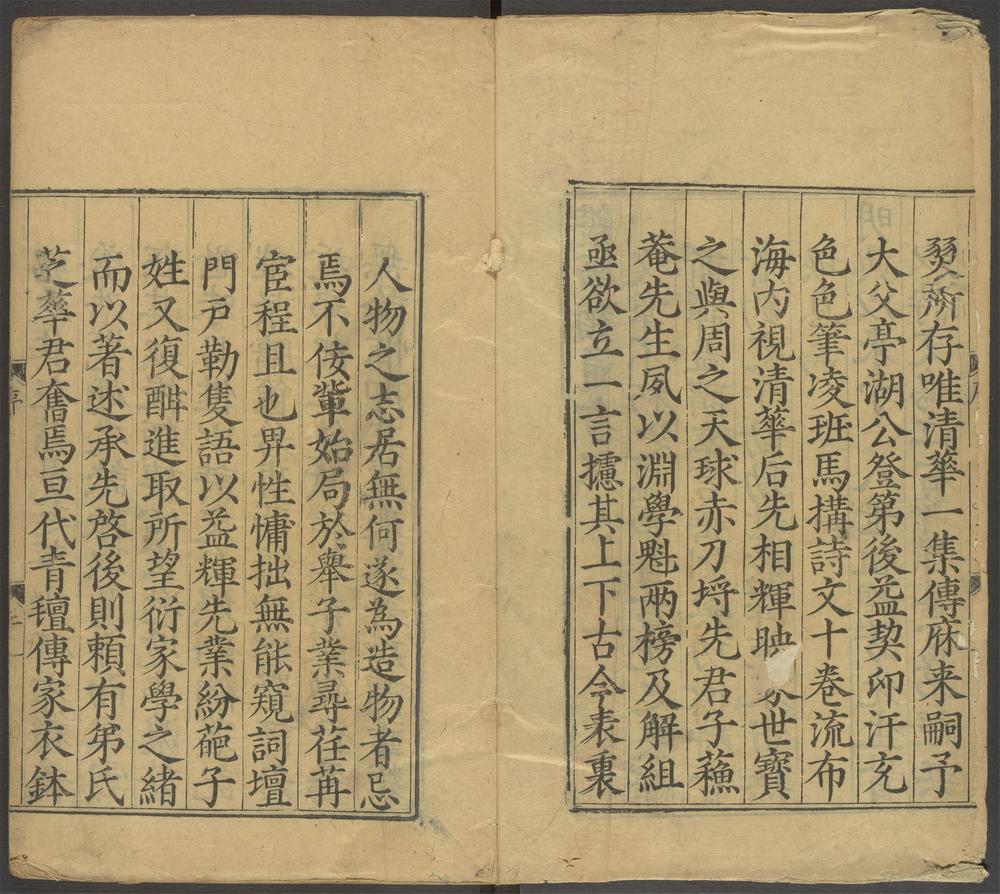 爕所存唯清華一集傳庥来嗣予
大父亭湖公登第後益契卬汗充
色色筆凌班馬搆詩文十卷流布
海内視清華后先相輝映 世寶
之與周之天球赤刀埒先君子蘓
菴先生夙以淵學魁兩榜及解組
亟欲立一言攄其上下古今表裏
人物之志居無何遂為造物者忌
焉不佞軰始局於舉子業尋荏苒
宦程且也畀性慵拙無能窺詞壇
門戸勒隻語以益輝先業紛葩子
姓又復酣進取所望衍家學之緒
而以著述承先啓後則頼有弟氏
芝華君奮焉亘代青氊傳家衣鉢